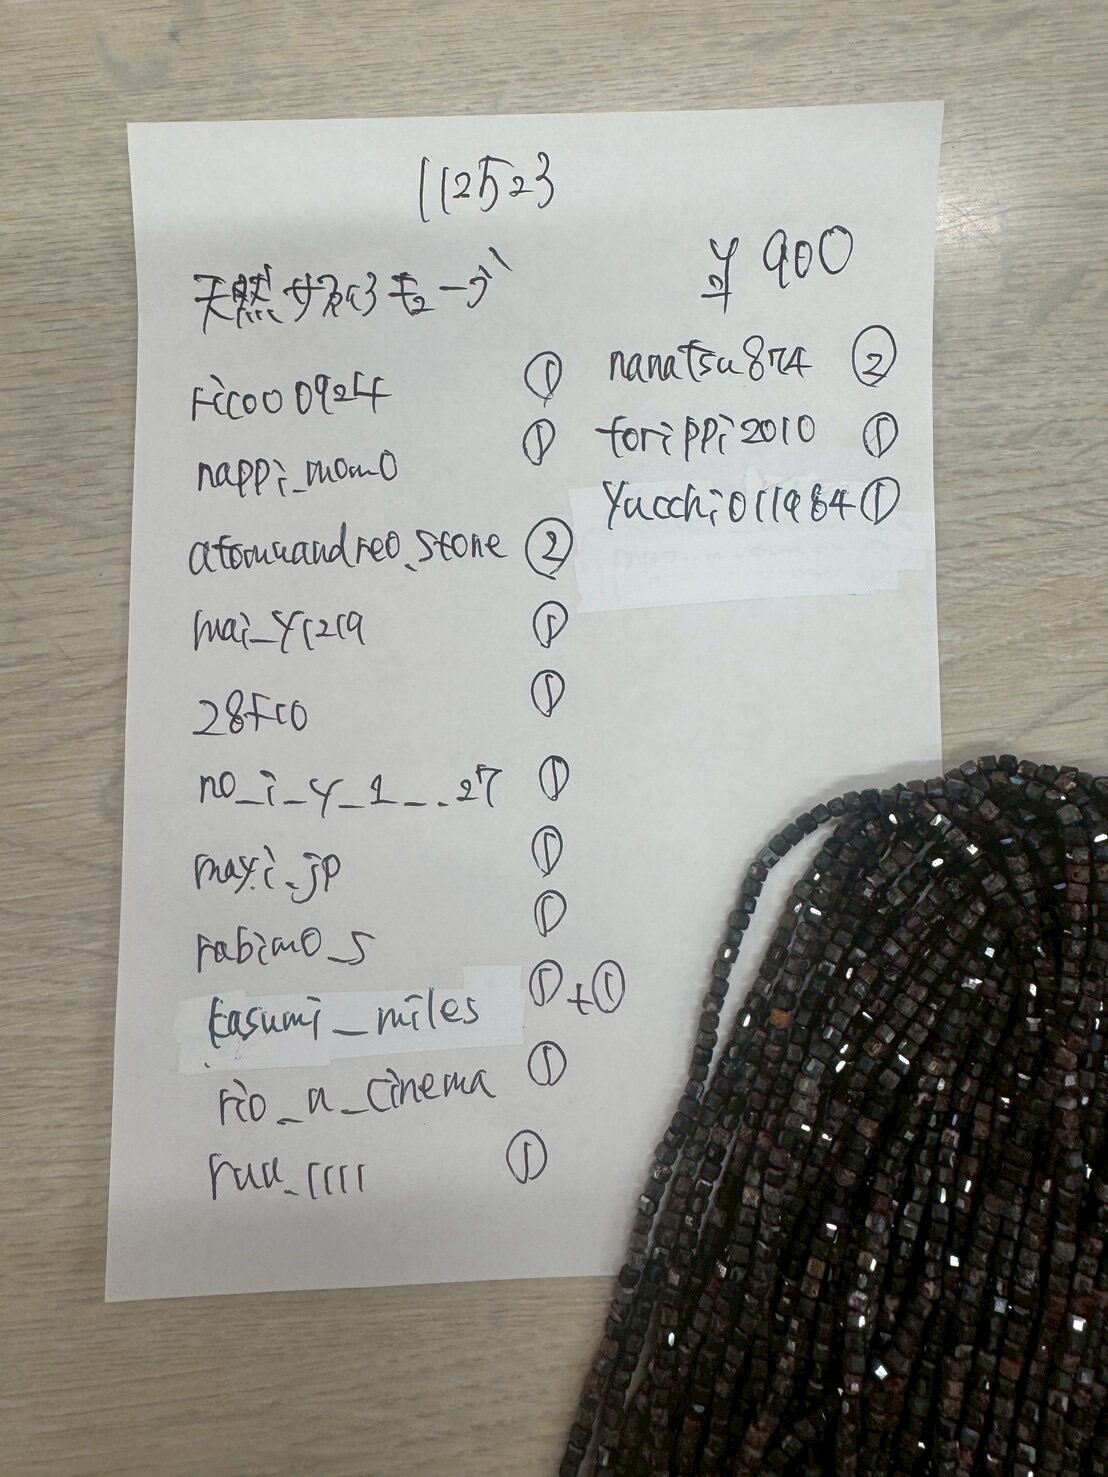 112523
¥ 900
天然
ricoo0924 ①
nappi_momo ①
atomuandreo_stone ②
mai_y1219 ①
28fco ①
no_i_y_1__.27 ①
mayi_jp ①
rabimo_s ①
kasumi_miles ①+①
rio_a_cinema ①
ruu_1111 ①
nanatsu874 ②
forippi2010 ①
Yucchi011984 ①